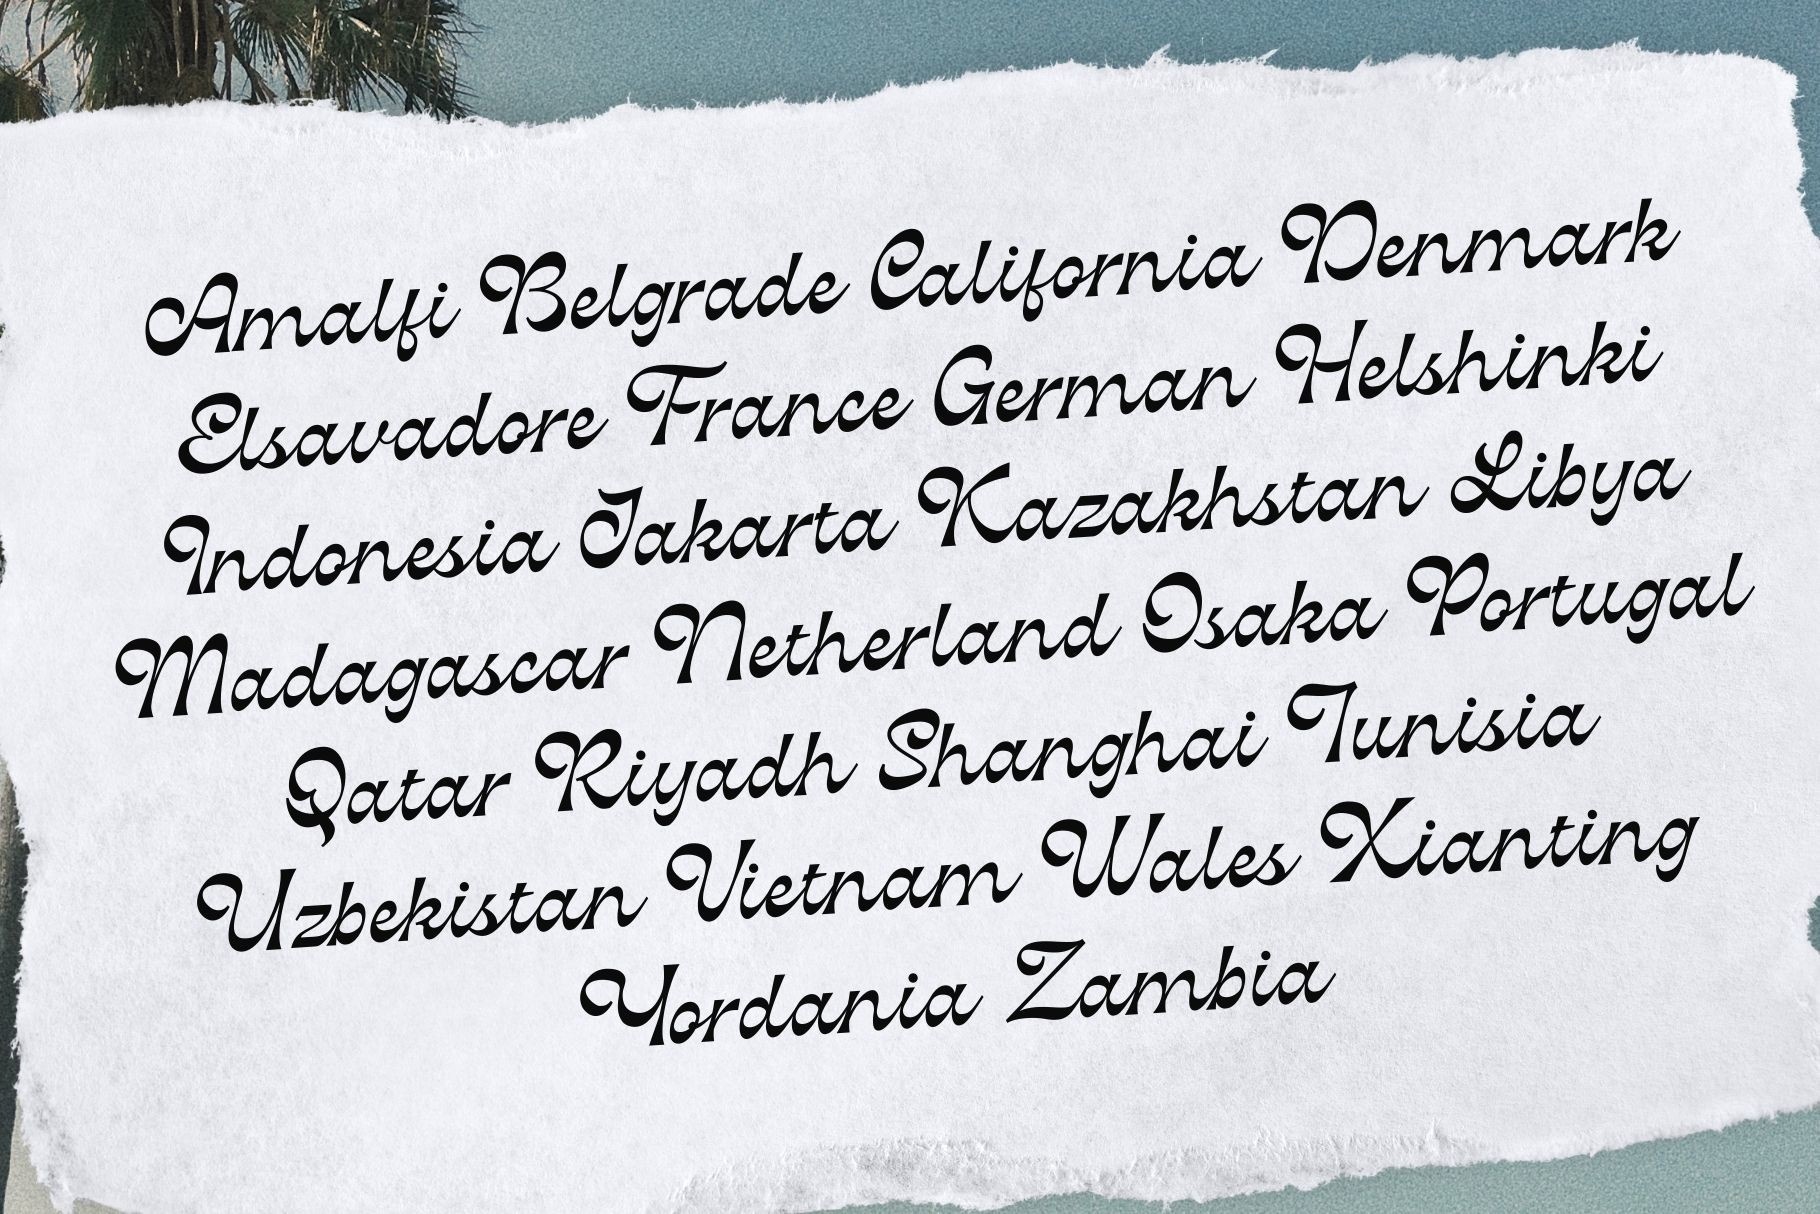 Amalfi Belgrade California Denmark
Elsavadore France German Helshinki
Indonesia Jakarta Kazakhstan Libya
Madagascar Netherland Osaka Portugal
Qatar Riyadh Shanghai Tunisia
Uzbekistan Vietnam Wales Xianting
Yordania Zambia